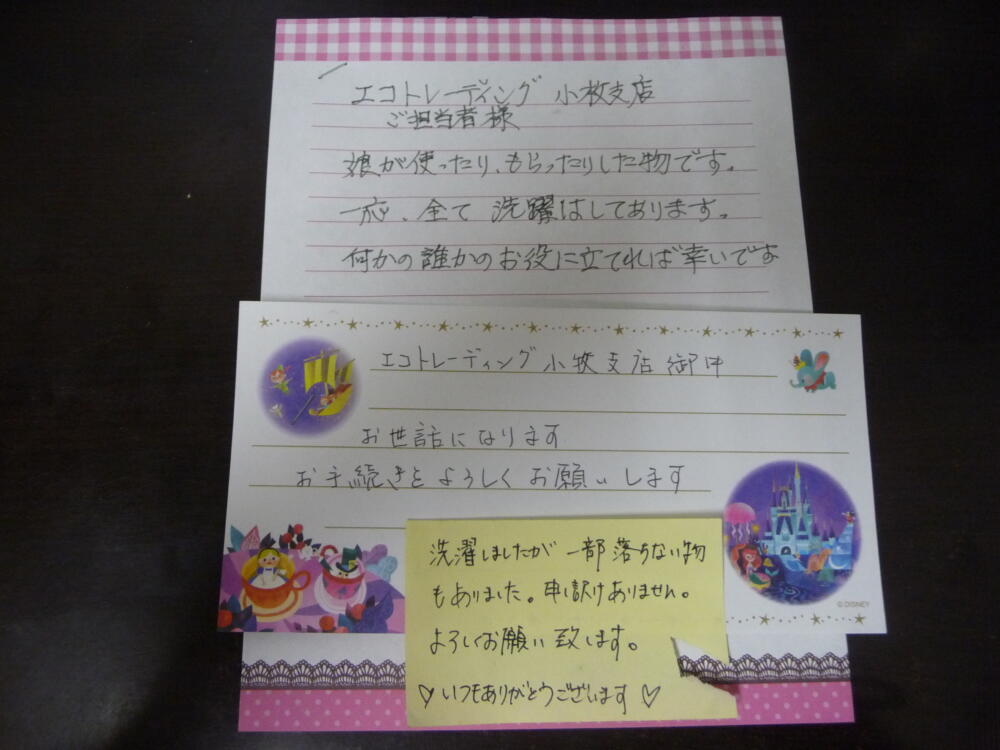 エコトレーディング 小枚支店
ご担当者様
娘が使ったり、もらったりした物です。
一応、全て 洗濯はしてあります。
何かの誰かのお役に立てれば幸いです
エコトレーディング 小牧支店 御中
お世話になります
お手続きを よろしく お願いします
© DISNEY
洗濯しましたが 一部落ちない物
もありました。申し訳けありません。
よろしくお願い致します。
♡いつもありがとうございます♡